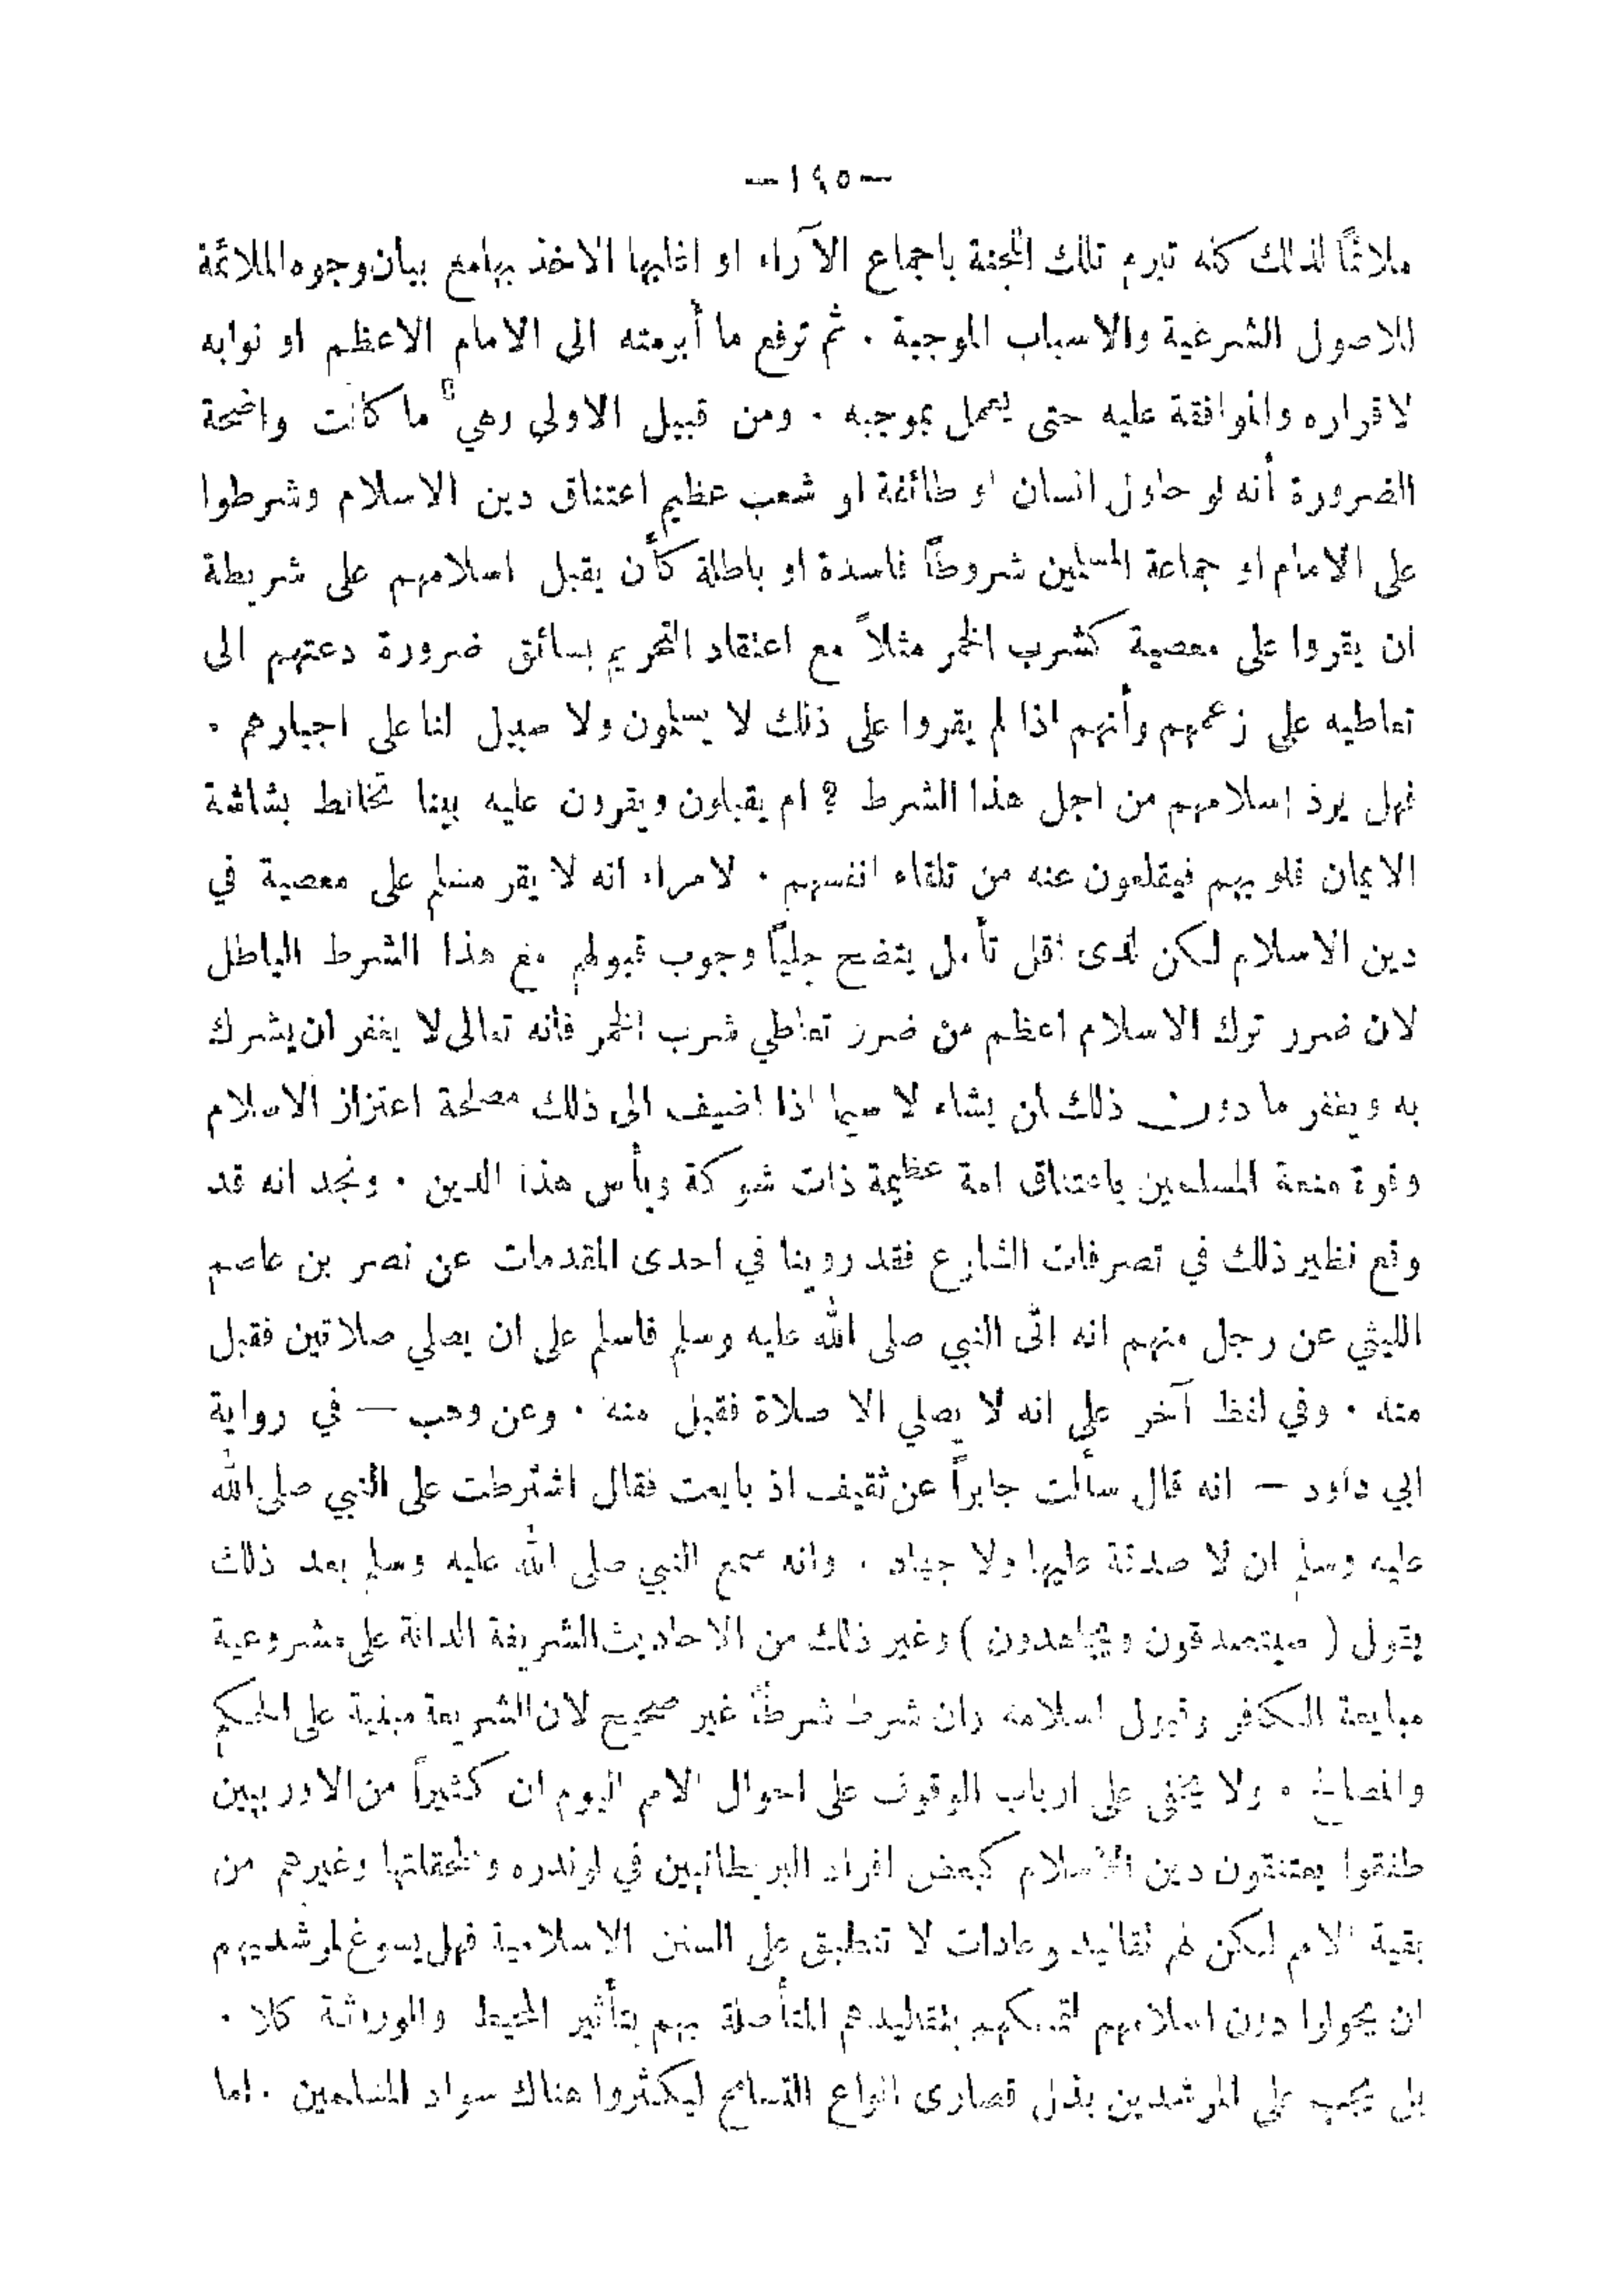 —١٩٥—
ملائمًا لذلك كله تبرم تلك اللجنة باجماع الآراء او اغلبها الاخذ بهامع بيان وجوه الملائمة
للاصول الشرعية والاسباب الموجبة . ثم ترفع ما أبرمته الى الامام الاعظم او نوابه
لاقراره والموافقة عليه حتى يعمل بموجبه . ومن قبيل الاولى وهي ما كانت واضحة
الضرورة أنه لو حاول انسان او طائفة او شعب عظيم اعتناق دين الاسلام وشرطوا
على الامام او جماعة المسلمين شروطًا فاسدة او باطلة كأن يقبل اسلامهم على شريطة
ان يقروا على معصية كشرب الخمر مثلاً مع اعتقاد التحريم بسائق ضرورة دعتهم الى
تعاطيه على زعمهم وأنهم اذا لم يقروا على ذلك لا يسلمون ولا سبيل لنا على اجبارهم .
فهل يرد إسلامهم من اجل هذا الشرط ? ام يقبلون ويقرون عليه بينا تخالط بشاشة
الايمان قلوبهم فيقلعون عنه من تلقاء انفسهم . لامراء انه لا يقر مسلم على معصية في
دين الاسلام لكن لدى اقل تأمل يتضح جليًا وجوب قبولهم مع هذا الشرط الباطل
لان ضرر ترك الاسلام اعظم من ضرر تعاطي شرب الخمر فانه تعالى لا يغفر ان يشرك
به ويغفر ما دون ذلك لمن يشاء لا سيما اذا اضيف الى ذلك مصلحة اعتزاز الاسلام
وقوة منعة المسلمين باعتناق امة عظيمة ذات شوكة وبأس هذا الدين . ونجد انه قد
وقع نظير ذلك في تصرفات الشارع فقد روينا في احدى المقدمات عن نصر بن عاصم
الليثي عن رجل منهم انه اتى النبي صلى الله عليه وسلم فاسلم على ان يصلي صلاتين فقبل
منه . وفي لفظ آخر على انه لا يصلي الا صلاة فقبل منه . وعن وهب — في رواية
ابي داود — انه قال سألت جابراً عن ثقيف اذ بايعت فقال اشترطت على النبي صلى الله
عليه وسلم ان لا صدقة عليها ولا جهاد . وانه سمع النبي صلى الله عليه وسلم بعد ذلك
يقول ( سيتصدقون ويجاهدون ) وغير ذلك من الاحاديث الشريفة الدالة على مشروعية
مبايعة الكافر وقبول اسلامه وان شرط شرطًا غير صحيح لان الشريعة مبنية على الحكم
والمصالح . ولا يخفى على ارباب الوقوف على احوال الامم اليوم ان كثيراً من الاوربيين
طفقوا يعتنقون دين الاسلام كبعض افراد البريطانيين في لوندره وملحقاتها وغيرهم من
بقية الامم لكن لهم تقاليد وعادات لا تنطبق على السنن الاسلامية فهل يسوغ لمرشديهم
ان يحولوا دون اسلامهم لتمسكهم بتقاليدهم المتأصلة بهم بتأثير المحيط والوراثة كلا .
بل يجب على المرشدين بذل قصارى انواع التسامح ليكثروا هناك سواد المسلمين . اما